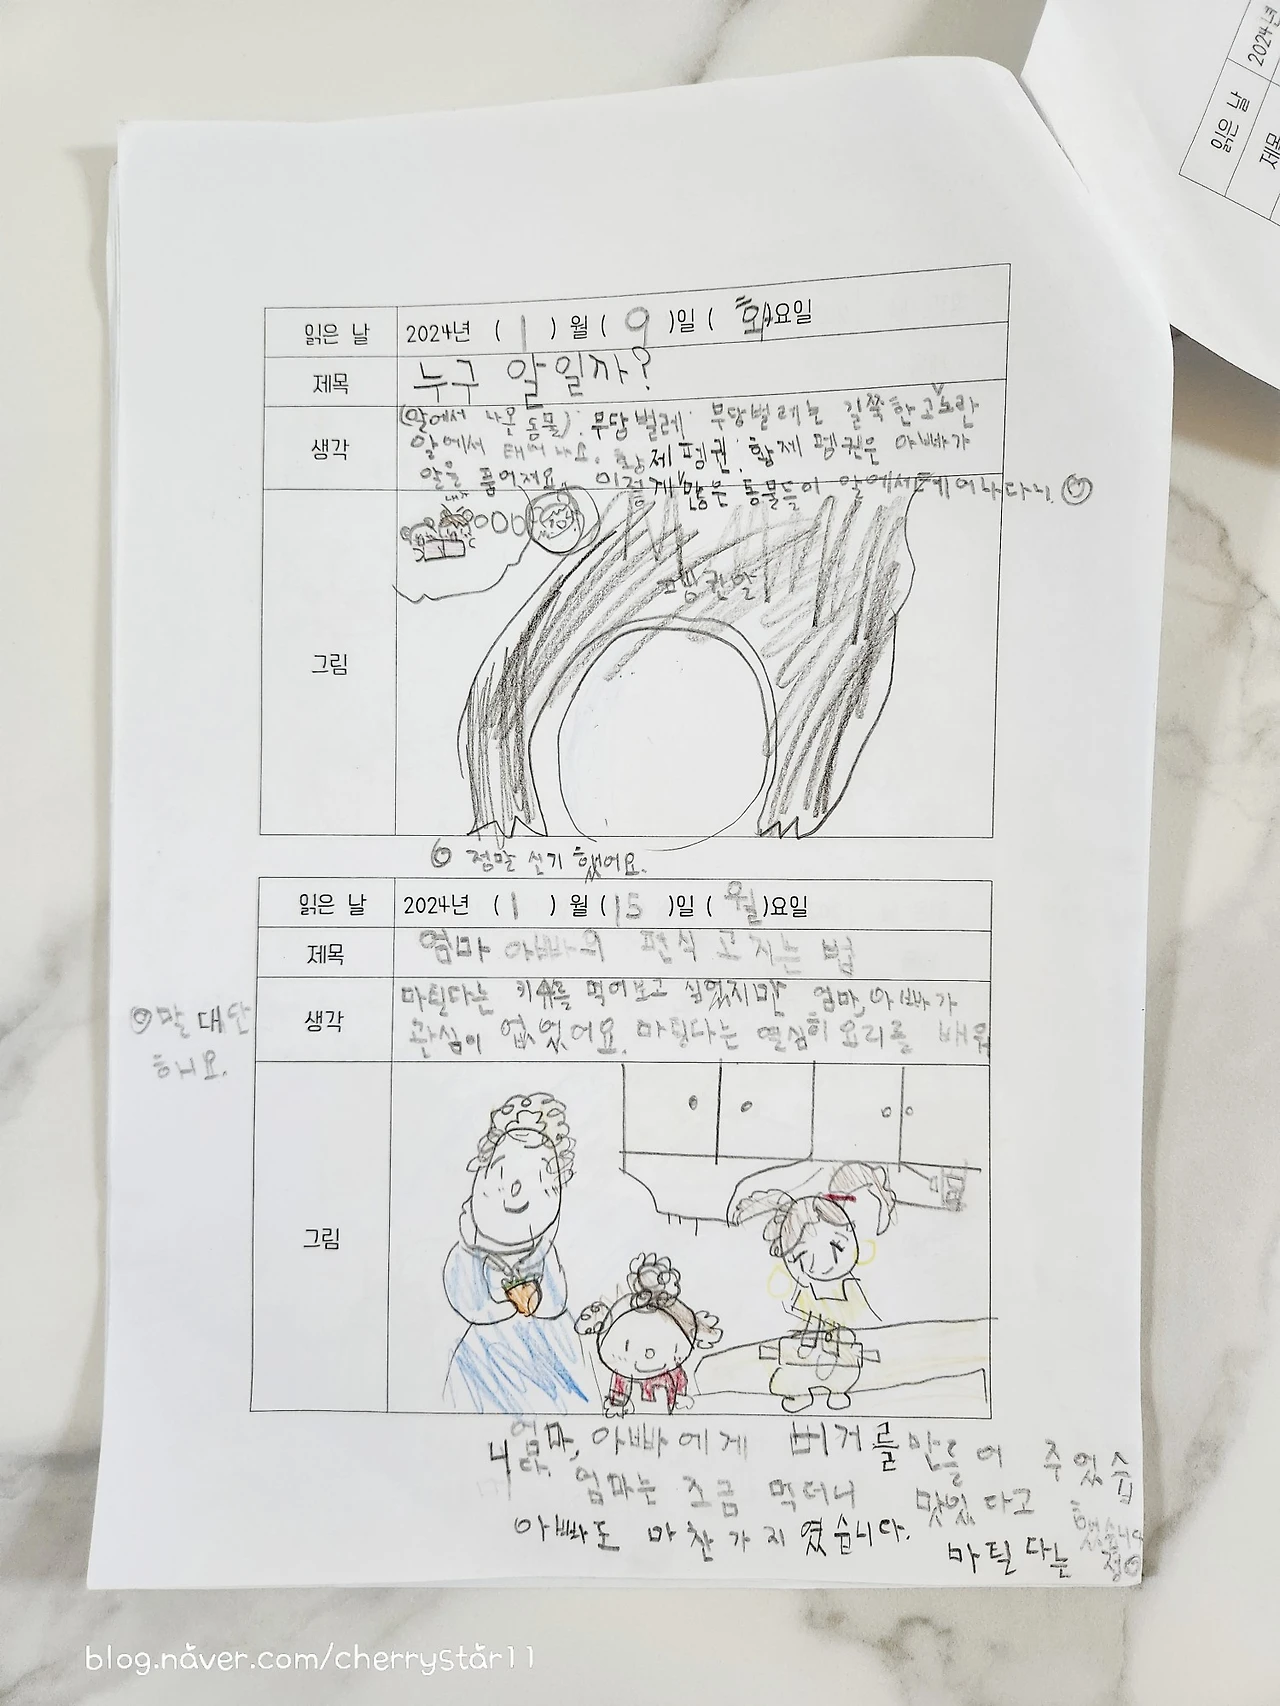 2024년
읽은 날
제목
읽은 날 2024년 ( 1 ) 월 ( 9 )일 ( 화)요일
제목 누구 알일까?
생각
(알에서 나온 동물): 무당벌레: 무당벌레는 길쭉한고노란
알에서 태어나요. 황제펭귄: 황제 펭귄은 아빠가
알을 품어져요. 이렇게 많은 동물들이 알에서 태어나다니.
펭귄알
그림
정말 신기했어요.
읽은 날 2024년 ( 1 ) 월 ( 15 )일 ( 월)요일
제목 엄마 아빠의 편식 고치는 법
생각
마틸다는 키슈를 먹어보고 싶었지만 엄마, 아빠가
관심이 없었어요. 마틸다는 열심히 요리를 배워
말 대단
하니요.
그림
엄마, 아빠에게 버거를 만들어 주었습
니다.
엄마는 조금 먹더니 맛있다고
했습니다
아빠도 마찬가지였습니다.
마틸다는 정
blog.naver.com/cherrystar11